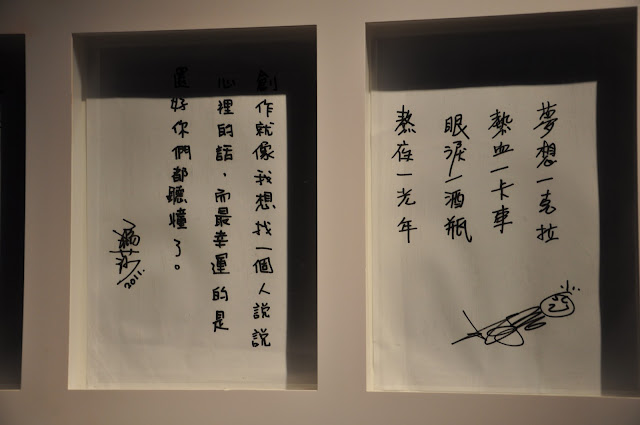 夢想一克拉
熱血一卡車
眼淚一酒瓶
熬夜一光年
創作就像我想找一個人說說
心裡的話,而最幸運的是
還好你們都聽懂了。
瑪莎
2011.